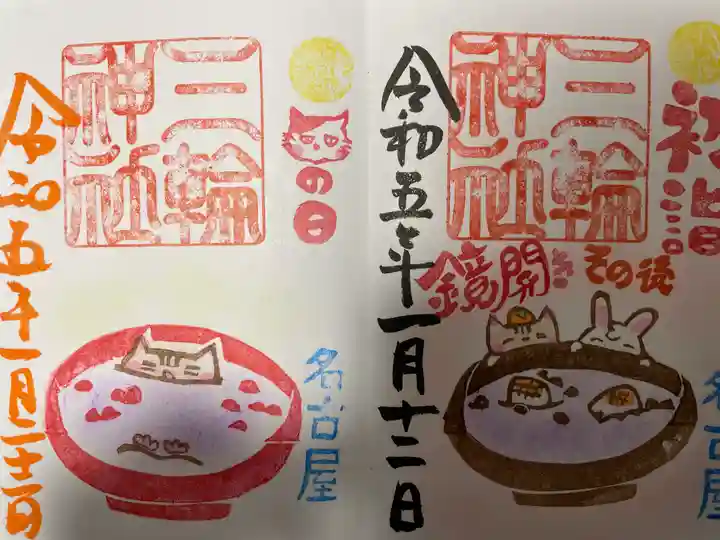 初詣
三輪
神社
鏡開き その後
令和五年一月十二日
名古屋
の日
三輪
神社
令和五年一月二十二日
名古屋